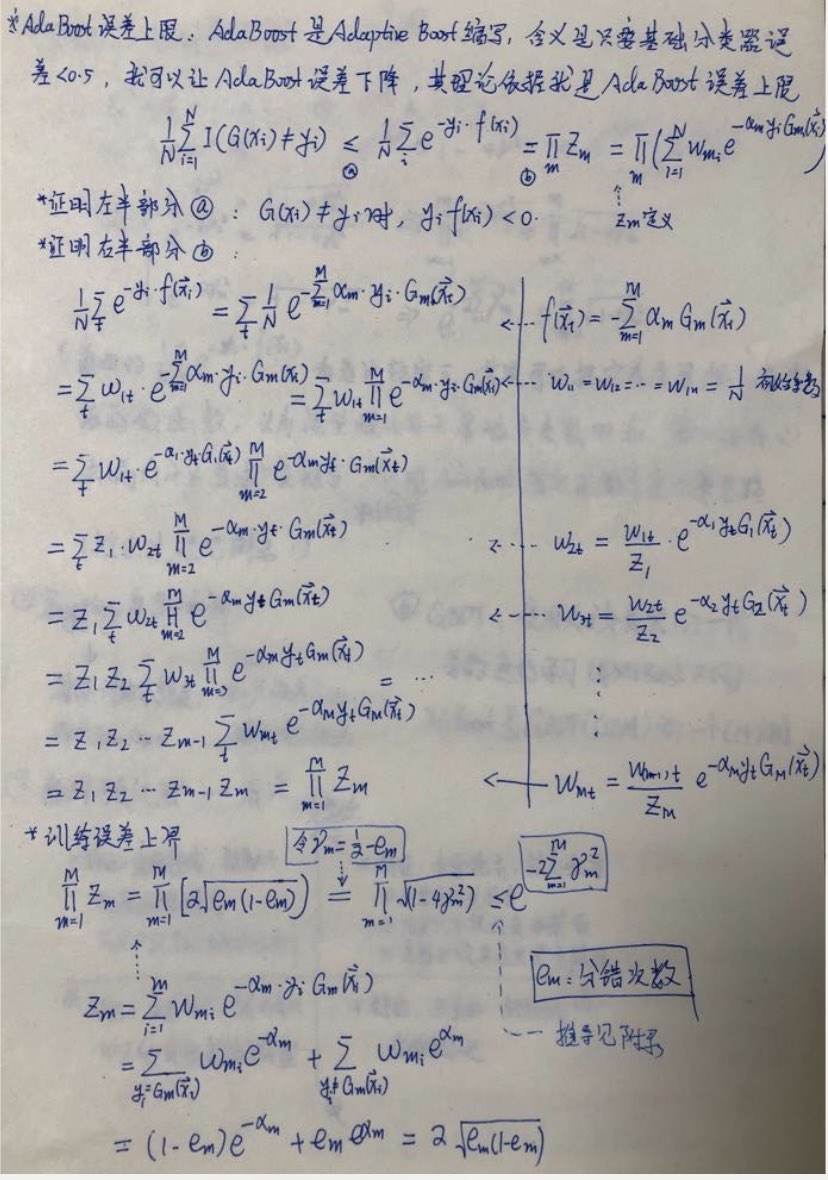 *AdaBoost误差上限：AdaBoost是Adaptive Boost缩写，含义是只要基础分类器误
差<0.5，就可以让AdaBoost误差下降，其理论依据就是AdaBoost误差上限
1/N Σ_{i=1}^{N} I(G(xi)≠yi) ≤ⓐ 1/N Σ_i e^{-yi·f(xi)} =ⓑ ∏_m Zm = ∏_m (Σ_{i=1}^{N} w_{mi} e^{-αm yi Gm(x⃗i)})
Zm定义
*证明左半部分ⓐ：G(xi)≠yi时，yi f(xi)<0.
*证明右半部分ⓑ：
1/N Σ_t e^{-yi·f(x⃗i)} = Σ_t 1/N e^{-Σ_{m=1}^{M} αm·yi·Gm(x⃗i)} ← f(x⃗i) = -Σ_{m=1}^{M} αm Gm(x⃗i)
= Σ_t w1t · e^{-Σ_{m=1}^{M} αm·yi·Gm(xi)} = Σ_t w1t ∏_{m=1}^{M} e^{-αm·yi·Gm(x⃗i)} ← w11 = w12 = ··· = w1n = 1/N 初始参数
= Σ_t w1t · e^{-α1·yt G1(x⃗t)} ∏_{m=2}^{M} e^{-αm yt·Gm(x⃗t)}
= Σ_t Z1·w2t ∏_{m=2}^{M} e^{-αm·yt·Gm(x⃗t)} ← w2t = w1t/Z1 · e^{-α1 yt G1(x⃗t)}
= Z1 Σ_t w2t ∏_{m=2}^{M} e^{-αm yt Gm(x⃗t)} ← w3t = w2t/Z2 e^{-α2 yt G2(x⃗t)}
= Z1 Z2 Σ_t w3t ∏_{m=3}^{M} e^{-αm yt Gm(x⃗t)} = ··· ⋮
= Z1 Z2 ··· Zm-1 Σ_t wMt e^{-αM yt GM(x⃗t)} ⋮
= Z1 Z2 ··· Zm-1 Zm = ∏_{m=1}^{M} Zm ← wMt = w_{m-1,t}/ZM e^{-αM yt GM(x⃗t)}
*训练误差上界
令γm = 1/2 - em
∏_{m=1}^{M} Zm = ∏_{m=1}^{M} [2√(em(1-em))] = ∏_{m=1}^{M} √(1-4γm²) ≤ e^{-2Σ_{m=1}^{M} γm²}
em：分错次数
Zm = Σ_{i=1}^{m} wmi e^{-αm·yi Gm(x⃗i)}
推导见附录
= Σ_{yi=Gm(x⃗i)} wmi e^{-αm} + Σ_{yi≠Gm(x⃗i)} wmi e^{αm}
= (1-em)e^{-αm} + em e^{αm} = 2√(em(1-em))